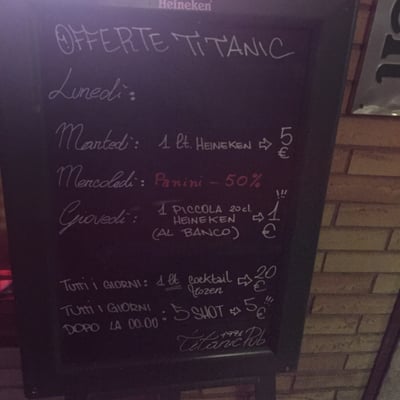 Heineken
OFFERTE TITANIC
Lunedì:
Martedì: 1 lt. HEINEKEN ⇨ 5 €
Mercoledì: Panini - 50%
Giovedì: 1 PICCOLA 20cl HEINEKEN (AL BANCO) ⇨ 1 !!! €
TUTTI I GIORNI: 1 lt cocktail frozen ⇨ 20 €
TUTTI I GIORNI DOPO LA 00.00: 5 SHOT ⇨ 5 !!! €
Titanic Pub